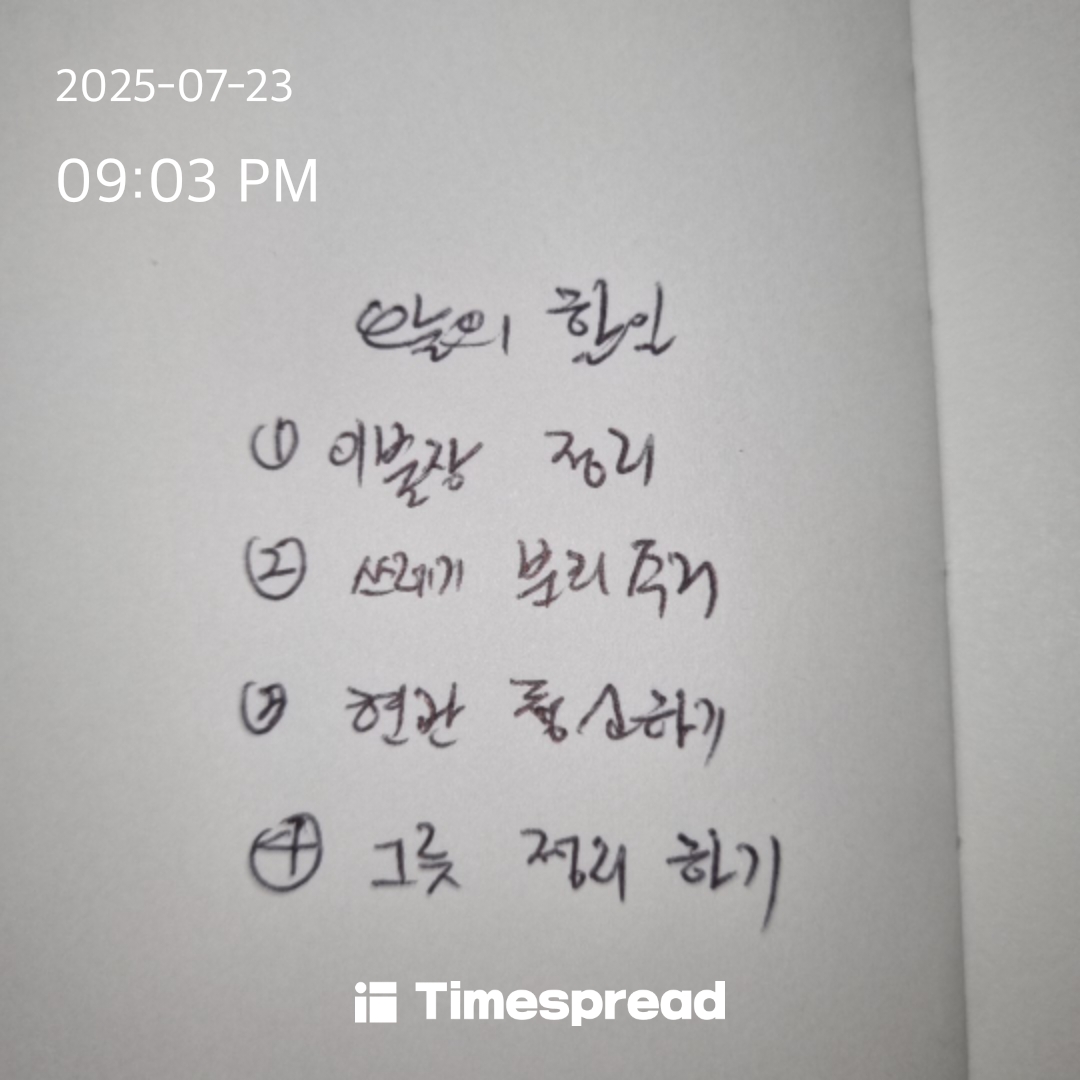 2025-07-23
09:03 PM
오늘의 한일
① 이불장 정리
② 쓰레기 분리
③ 현관 청소하기
④ 그릇 정리 하기
Timespread